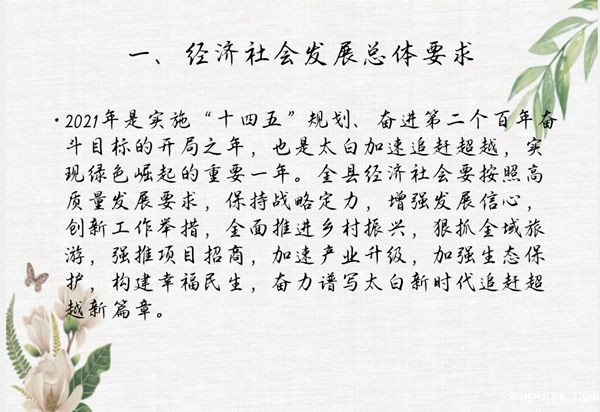 一、经济社会发展总体要求
•2021年是实施“十四五”规划、奋进第二个百年奋
斗目标的开局之年，也是太白加速追赶超越，实
现绿色崛起的重要一年。全县经济社会要按照高
质量发展要求，保持战略定力，增强发展信心，
创新工作举措，全面推进乡村振兴，狠抓全域旅
游，强推项目招商，加速产业升级，加强生态保
护，构建幸福民生，奋力谱写太白新时代追赶超
越新篇章。
kaouua.com